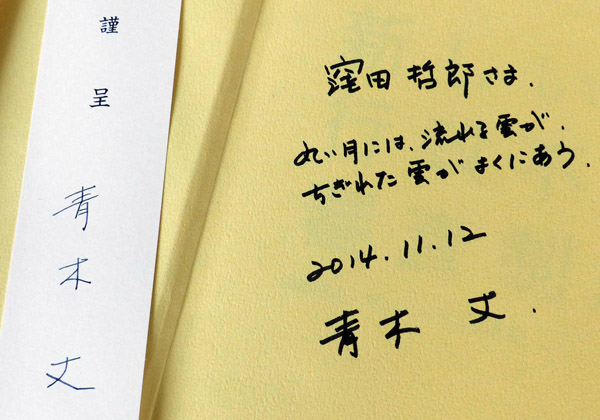 謹呈
青木丈
窪田哲郎さま.
丸い月には、流れる雲が、
ちぎれた雲がよくにあう.
2014.11.12
青木 丈.